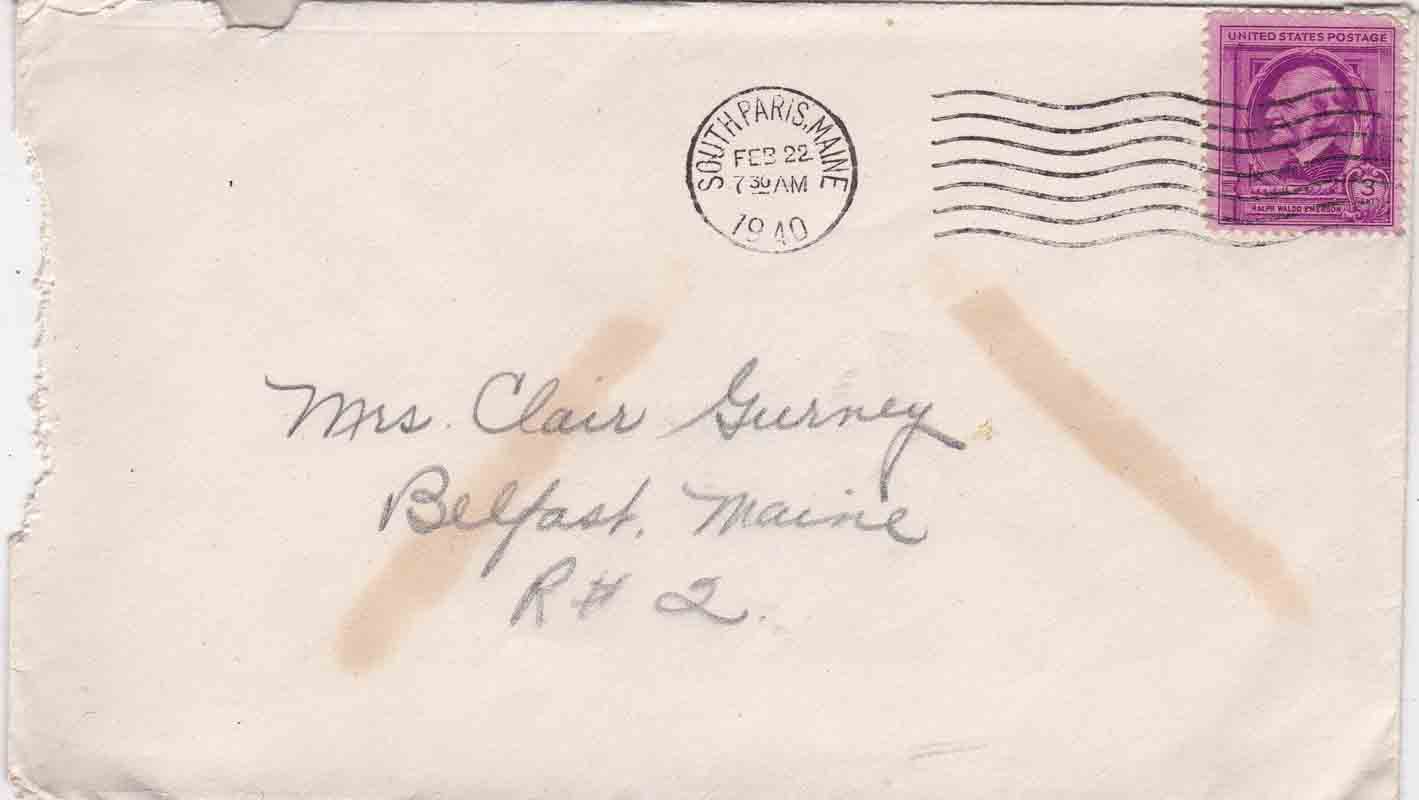 UNITED STATES POSTAGE
SOUTH PARIS, MAINE
FEB 22
7 30 AM
1940
3
RALPH WALDO EMERSON
Mrs. Clair Gurney
Belfast, Maine
R # 2.